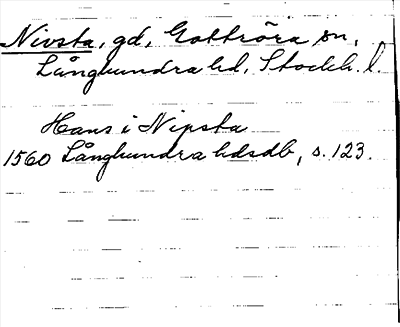 Nivsta, gd, Gottröra sn,
Långhundra hd, Stockh. l.
Hans i Nipsta
1560 Långhundra hdsdb, s. 123.